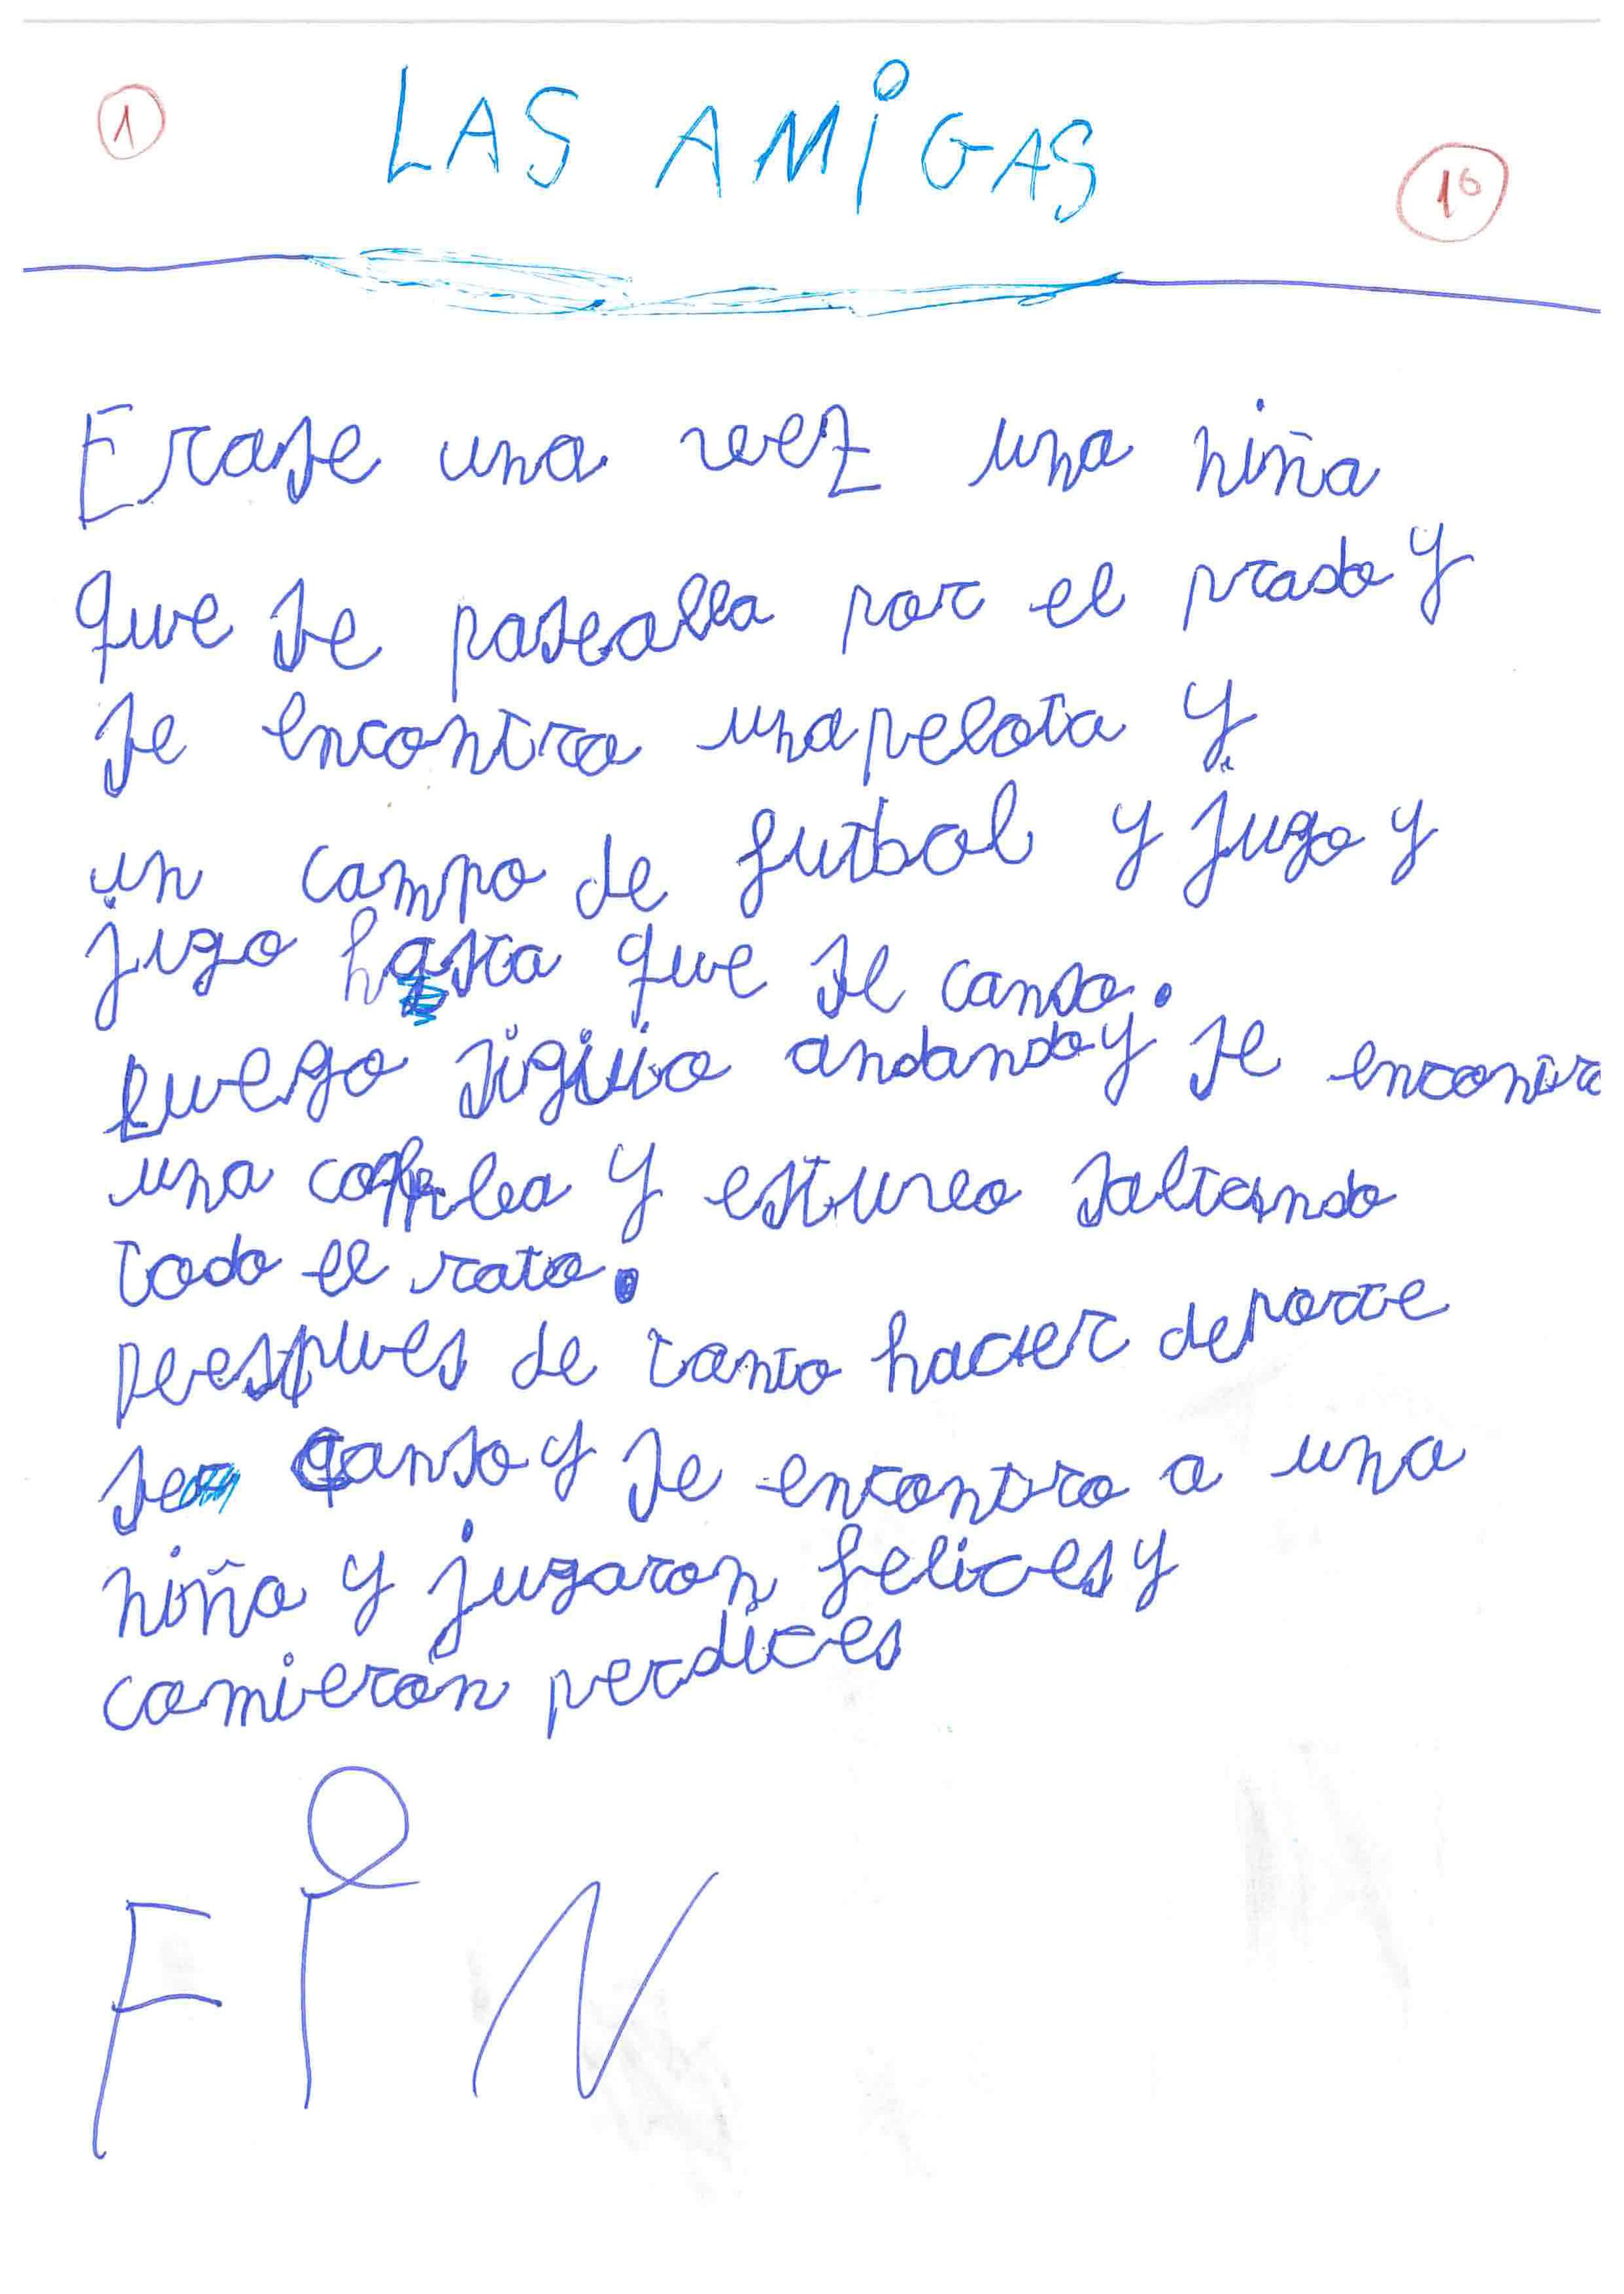 1
LAS AMiGAS
16
Erase una vez una niña
que se paseaba por el prado y
se encontro una pelota y
un campo de futbol y jugo y
jigo hasta que se canso.
Luego siguio andando y se encontro
una comba y estuvo saltando
todo el rato.
Deespues de tanto hacer deporte
se canso y se encontro a una
niña y jugaron felices y
comieron perdices
FiN